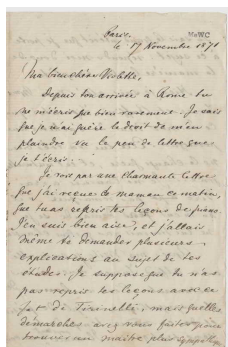 Paris.
le 17 Novembre 1871
Ma bien chère Violette,
Depuis ton arrivée à Rome tu
ne m'écris que bien rarement. Je sais
que je n'ai guère le droit de m'en
plaindre vu le peu de lettres que
je t'écris.
Je vois par une charmante lettre
que j'ai reçue de maman ce matin,
que tu as repris tes leçons de piano.
J'en suis bien aise, et j'allais
même te demander plusieurs
explications au sujet de tes
études. Je suppose que tu n'as
pas repris tes leçons avec ce
de mais quelles
démarches avez vous faites pour
trouver un maître plus